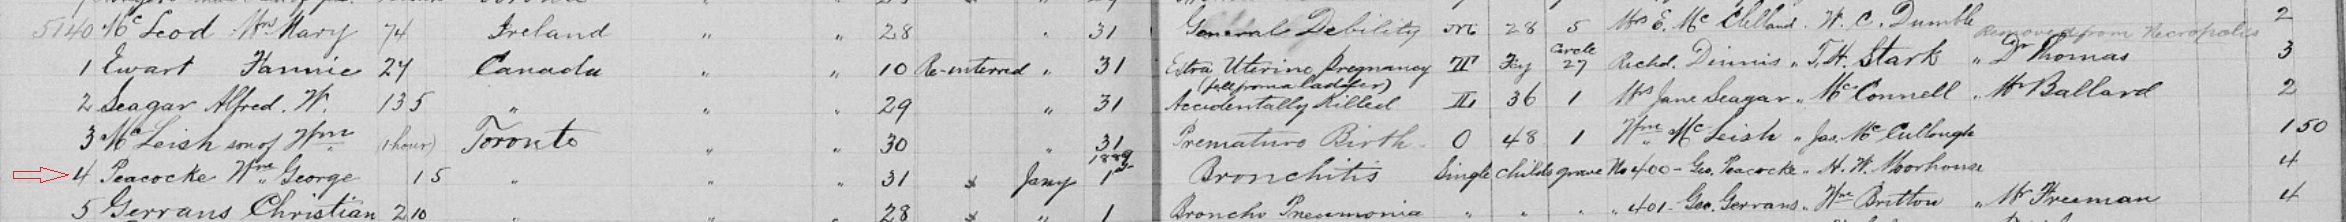 5140 Mc Leod Mrs Mary 74 Ireland " " 28 " 31 General Debility M 28 5 Mrs E. Mc Clelland. W. C. Dumble 2
Removed from Necropolis
1 Ewart Fannie 24 Canada " " 10 Re-interred " 31 Extra Uterine Pregnancy Circle 27 Richd. Dinnis " T. H. Stark " Dr Thomas 3
(fell from a ladder)
2 Seagar Alfred. W. 13 5 " " " 29 " 31 Accidentally Killed 36 1 Mrs Jane Seagar " Mc Connell " Mr Ballard 2
3 Mc Leish son of Wm (1 hour) Toronto " " 30 " 31 Premature Birth O 48 1 Wm Mc Leish " Jas. Mc Cullough 1 50
1889
4 Peacocke Wm George 1 5 " " " 31 " Jany 1st Bronchitis Single childs grave No 400 - Geo. Peacocke " H. W. Moorhouse 4
5 Gerrans Christian 2 10 " " " 28 " " 1 Broncho Pneumonia " " " " 401 - Geo. Gerrans " Wm Britton " Mr Freeman 4